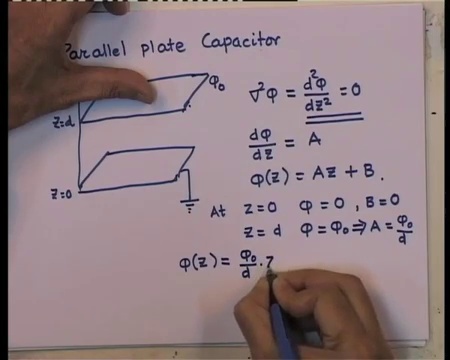 Parallel plate Capacitor
φ₀
∇²φ = d²φ/dz² = 0
z=d
dφ/dz = A
φ(z) = Az + B.
z=0
At z=0 φ=0 , B=0
z=d φ=φ₀ ⇒ A = φ₀/d
φ(z) = φ₀/d . z